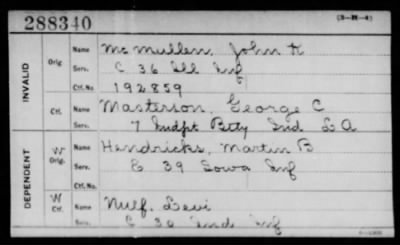 288340
(3-H-4)
INVALID
Orig
Name McMullen, John K
Serv. C 36 Ill Inf
Ctf. No. 192859
Ctf.
Name Masterson, George C
Serv. 7 Indpt Btty Ind L A
DEPENDENT
W
Orig.
Name Hendricks, Martin B
Serv. E 39 Iowa Inf
Ctf. No.
W
Ctf.
Name Nulf, Levi
E 30 Ind Inf